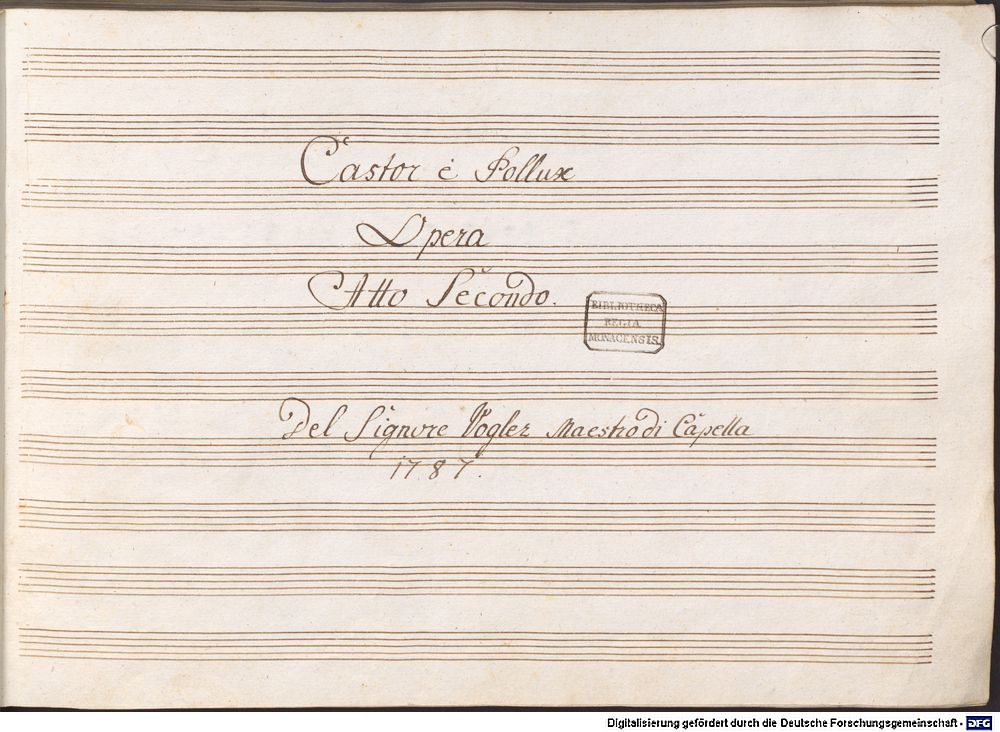 Castor è Pollux
Opera
Atto Secondo.
BIBLIOTHECA
REGIA
MONACENSIS.
Del Signore Vogler Maestro di Capella
1787.
Digitalisierung gefördert durch die Deutsche Forschungsgemeinschaft - DFG